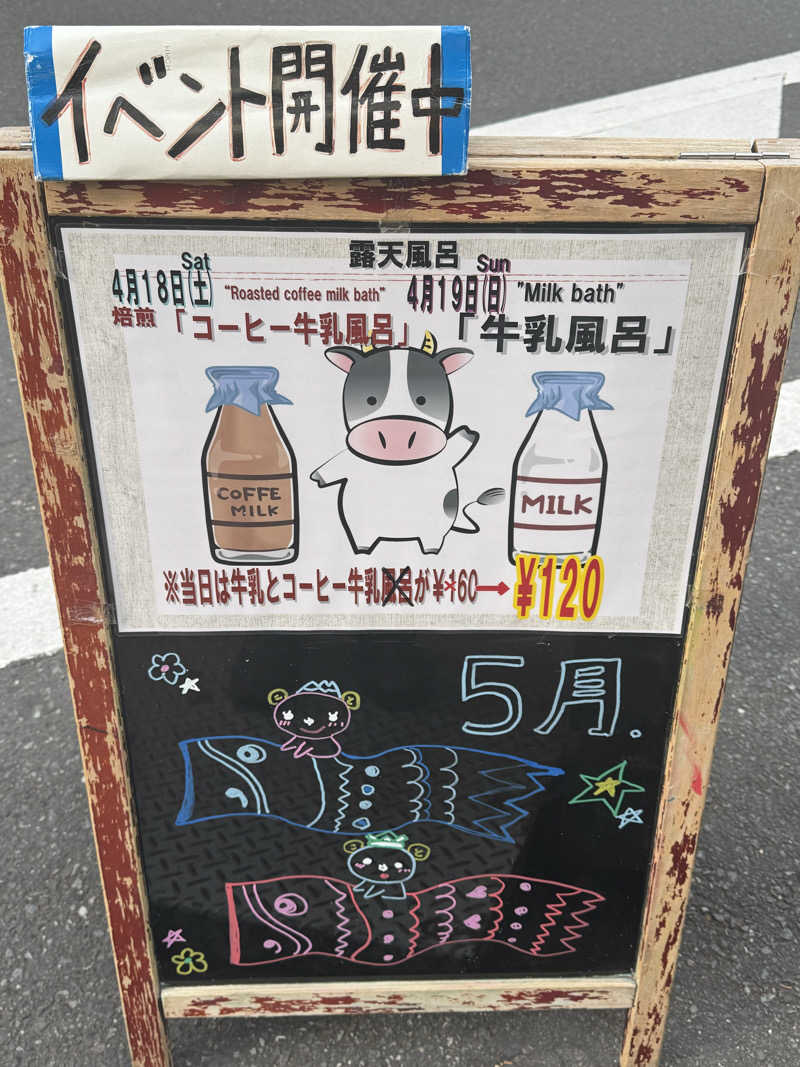 イベント開催中
露天風呂
Sat
4月18日(土) "Roasted coffee milk bath"
焙煎「コーヒー牛乳風呂」
Sun
4月19日(日) "Milk bath"
「牛乳風呂」
COFFE
MILK
MILK
※当日は牛乳とコーヒー牛乳風呂が¥160→¥120
5月.